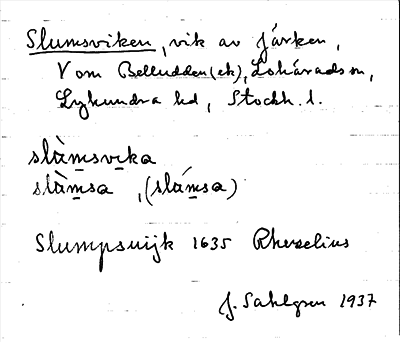 Slumsviken, vik av Járken,
V om Belludden (ek), Lohärads sn,
Lyhundra hd, Stockh. l.
slàmsvika
slàmsa, (slámsa)
Slumpsuijk 1635 Rhezelius
J. Sahlgren 1937